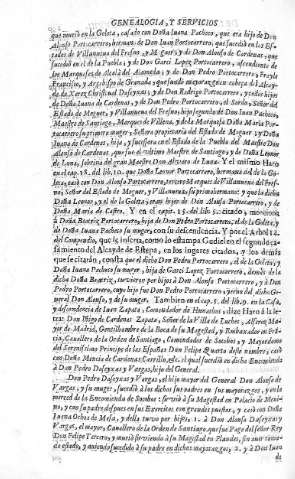 GENEALOGIA, Y SERVICIOS
que murió en la Goleta, casado con Doña Iuana Pacheco, que era hijo de Don
Alonso Portocarrero, hermano de Don Iuan Portocarrero, que sucedió en los Esta-
dos de Villanueva del Fresno, y Moguer; y de Don Alonso de Cardenas, que
sucedió en el de la Puebla; y de Don Garci Lopez Portocarrero, ascendiente de
los Marqueses de Alcalá del Alameda; y de Don Pedro Portocarrero, Frayle
Francisco, y Arçobispo de Granada
de Xerez Christoval Dasça y de Don Rodrigo Portocarrero, y este hijo
de Doña Iuana de Cardenas, y de Don Pedro Portocarrero, el Sordo, Señor del
Estado de Moguer, y Villanueva del Fresno, hijo segundo de Don Iuan Pacheco,
Maestre de Santiago, Marques de Villena, y de la Marquesa Doña Maria Por-
tocarrero su primera muger, Señora propietaria del Estado de Moguer; y Doña
Iuana de Cardenas, hija, y sucessora en el Estado de la Puebla del Maestre Don
Alonso de Cardenas, que fue el vltimo Maestre de Santiago, y de Doña Leonor
de Luna, sobrina del gran Maestre Don Alvaro de Luna. Y el mismo Haro
en el cap. 18. del lib. 10. que Doña Leonor Portocarrero, hermana del de la Go-
leta, casó con Don Alonso Portocarrero, tercero Marques de Villanueva del Fres-
no, Señor del Estado de Moguer, y Villanueva
Doña Leonor, y el de la Goleta, eran hijos de Don Alonso Portocarrero, y de
Doña Maria de Castro. Y en el cap. 15. del lib. citado, y menciona
à Doña Beatriz Portocarrero, hija de Don Pedro Portocarrero, el de la Goleta, y
de Doña Iuana Pacheco su muger, con su descendencia. Y por el Arbol 12.
del Compendio, que le inserta, como lo estampa Gudiel en el segundo ca-
samiento del Alcayde de Estepa, en los lugares citados, y los demàs
que se citaràn, consta que el dicho Don Pedro Portocarrero, el de la Goleta, y
Doña Iuana Pacheco su muger, hija de Garci Lopez Portocarrero, demàs de la
dicha Doña Beatriz, tuvieron por hijos à Don Alonso Portocarrero, y à Don
Pedro Portocarrero, cuyo hijo fue Don Pedro Portocarrero, primo del dicho Ge-
neral Don Alonso, y de su muger. Tambien en el cap. 5. del lib. 9. en la Casa,
y descendencia de Iuan Zapata, Comendador de Hornachos, dize Haro à la le-
tra: Don Iñigo de Cardenas Zapata, Señor de la Villa de Loeches, Alferez Ma-
yor de Madrid, Gentilhombre de la Boca de su Magestad, y Embaxador en Fra-
cia, Cavallero de la Orden de Santiago, Comendador de Socobos, y Mayordomo
del Serenissimo Principe de las Españas Don Felipe Quarto deste nombre, casò
con Doña Mencia de Cardenas Carrillo, &c. el qual sucedió en dicha Encomienda
à Don Pedro Dasçayas y Vargas, hijo del General.
Don Pedro Dasçayas y Vargas, el hijo mayor del General Don Alonso de
Vargas, y su muger, sucedió à los dichos sus padres en sus mayorazgos, y en la
merced de la Encomienda de Socobos: sirvió à su Magestad en Palacio de Meni-
no, y con su padre despues en sus Exercitos, en grandes puestos, y casò con Doña
Lucia Ochoa de Mesa, y desta tuvo por hijos. 1. à Don Alonso Dasçayas y
Vargas, el mayor, Cavallero de la Orden de Santiago, que fue Page del señor Rey
Don Felipe Tercero, y muriò sirviendo à su Magestad en Flandes, sin aver toma-
do estado, y aviendo sucedido à su padre en dichos mayorazgos. 2. y à Don Iuan